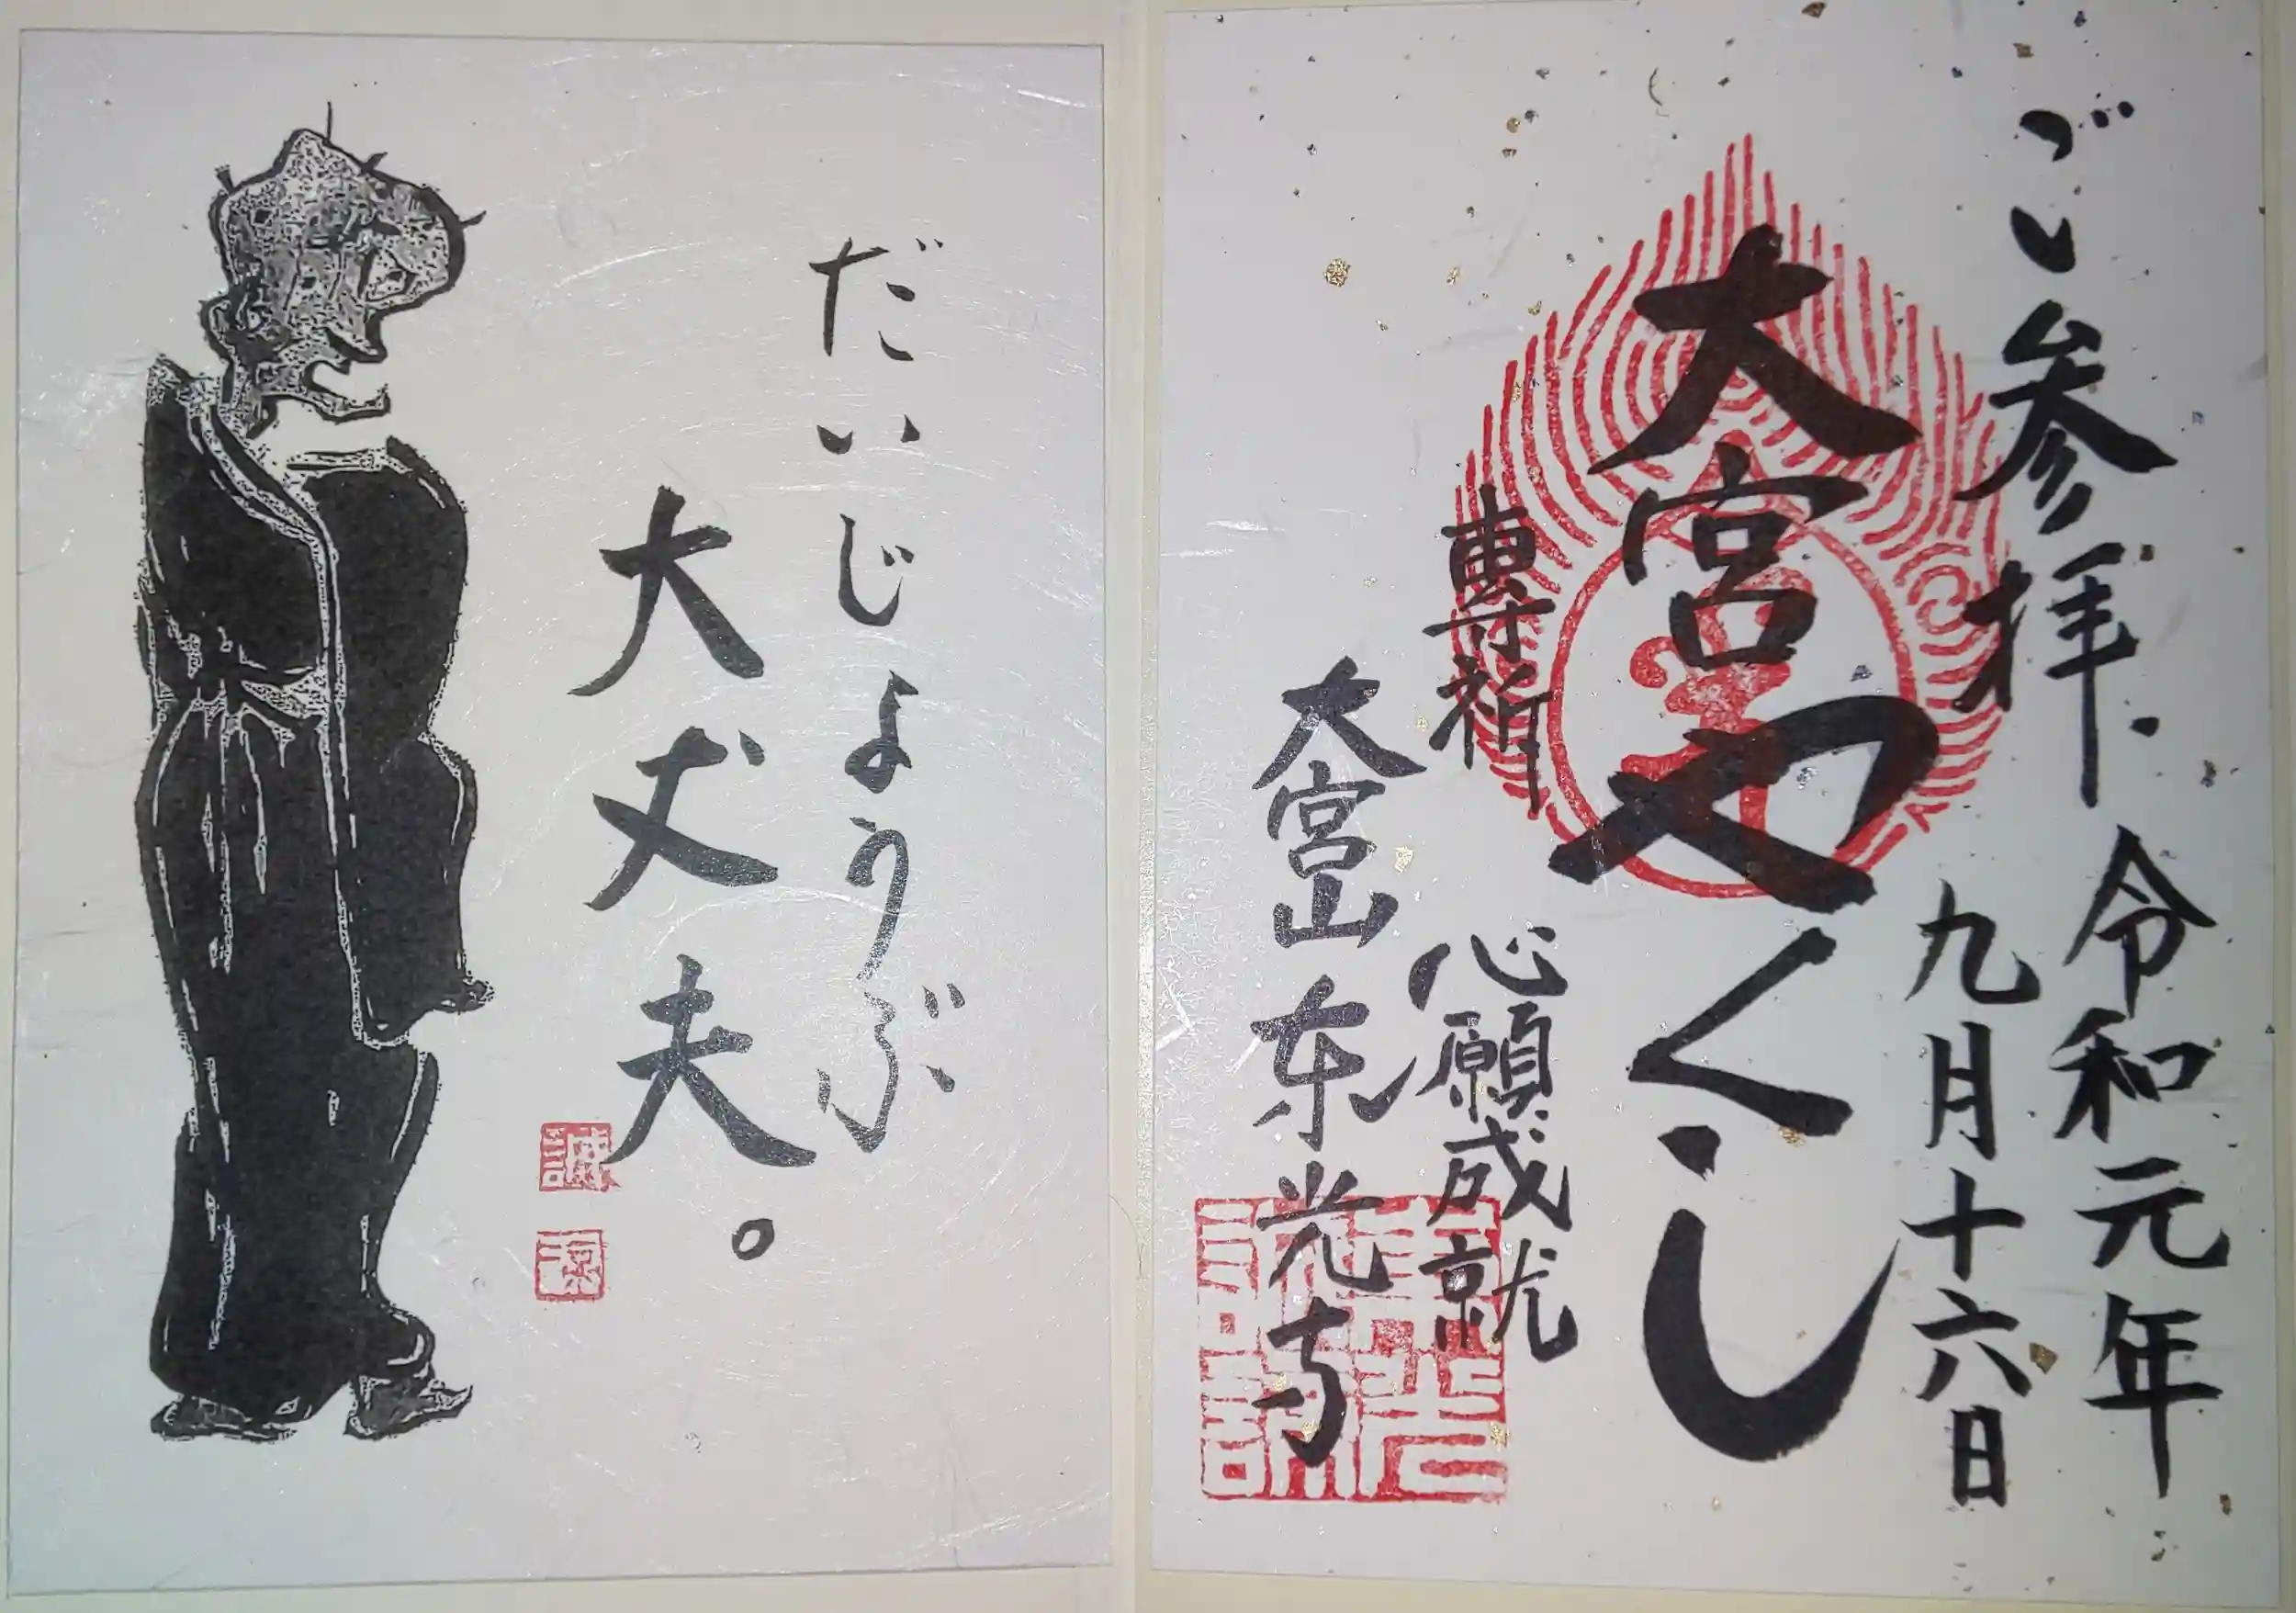 ご参拝
令和元年
九月十六日
大宮やくし
専祈
心願成就
大宮山東光寺
だいじょうぶ
大丈夫。